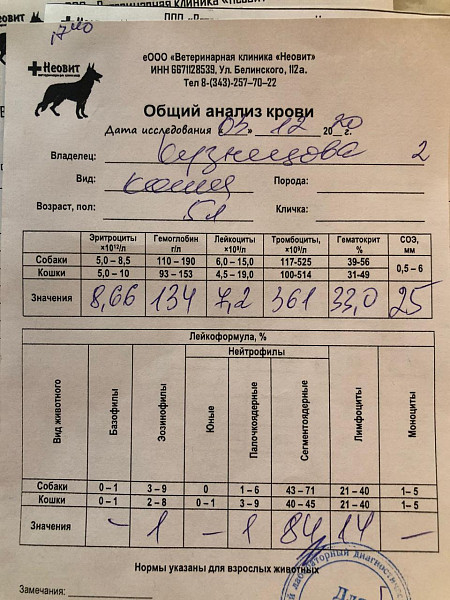 17 40
Неовит
ветеринарная клиника
еООО «Ветеринарная клиника «Неовит»
ИНН 6671128539, Ул. Белинского, 112а.
Тел 8-(343)-257-70-22
Общий анализ крови
Дата исследования «03» 12 2020 г.
Владелец: Кузнецова 2
Вид: кошка Порода:
Возраст, пол: 5л Кличка:
Эритроциты ×10¹²/л Гемоглобин г/л Лейкоциты ×10⁹/л Тромбоциты, ×10⁹/л Гематокрит % СОЭ, мм
Собаки 5,0 – 8,5 110 – 190 6,0 – 15,0 117-525 39-56 0,5 – 6
Кошки 5,0 – 10 93 – 153 4,5 – 19,0 100-514 31-49
Значения 8,66 134 7,2 361 33,0 25
Лейкоформула, %
Вид животного Базофилы Эозинофилы Нейтрофилы Лимфоциты Моноциты
Юные Палочкоядерные Сегментоядерные
Собаки 0 – 1 3 – 9 0 1 – 6 43 – 71 21 – 40 1 – 5
Кошки 0 – 1 2 – 8 0 – 1 3 – 9 40 – 45 21 – 40 1 – 5
Значения – 1 – 1 84 14 –
Нормы указаны для взрослых животных
Замечания:
лабораторный диагност
Для